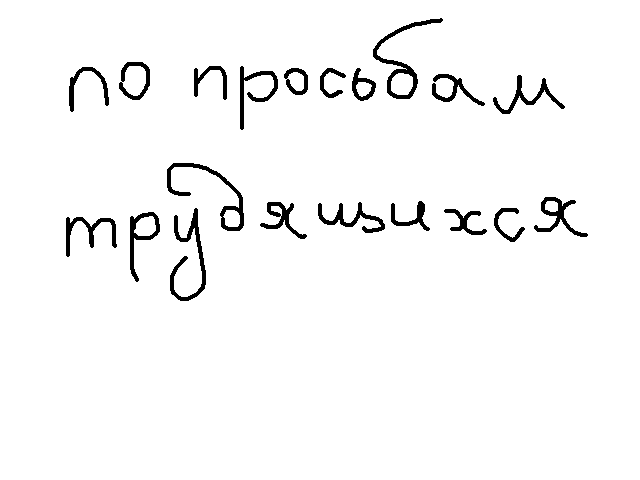 по просьбам
трудящихся